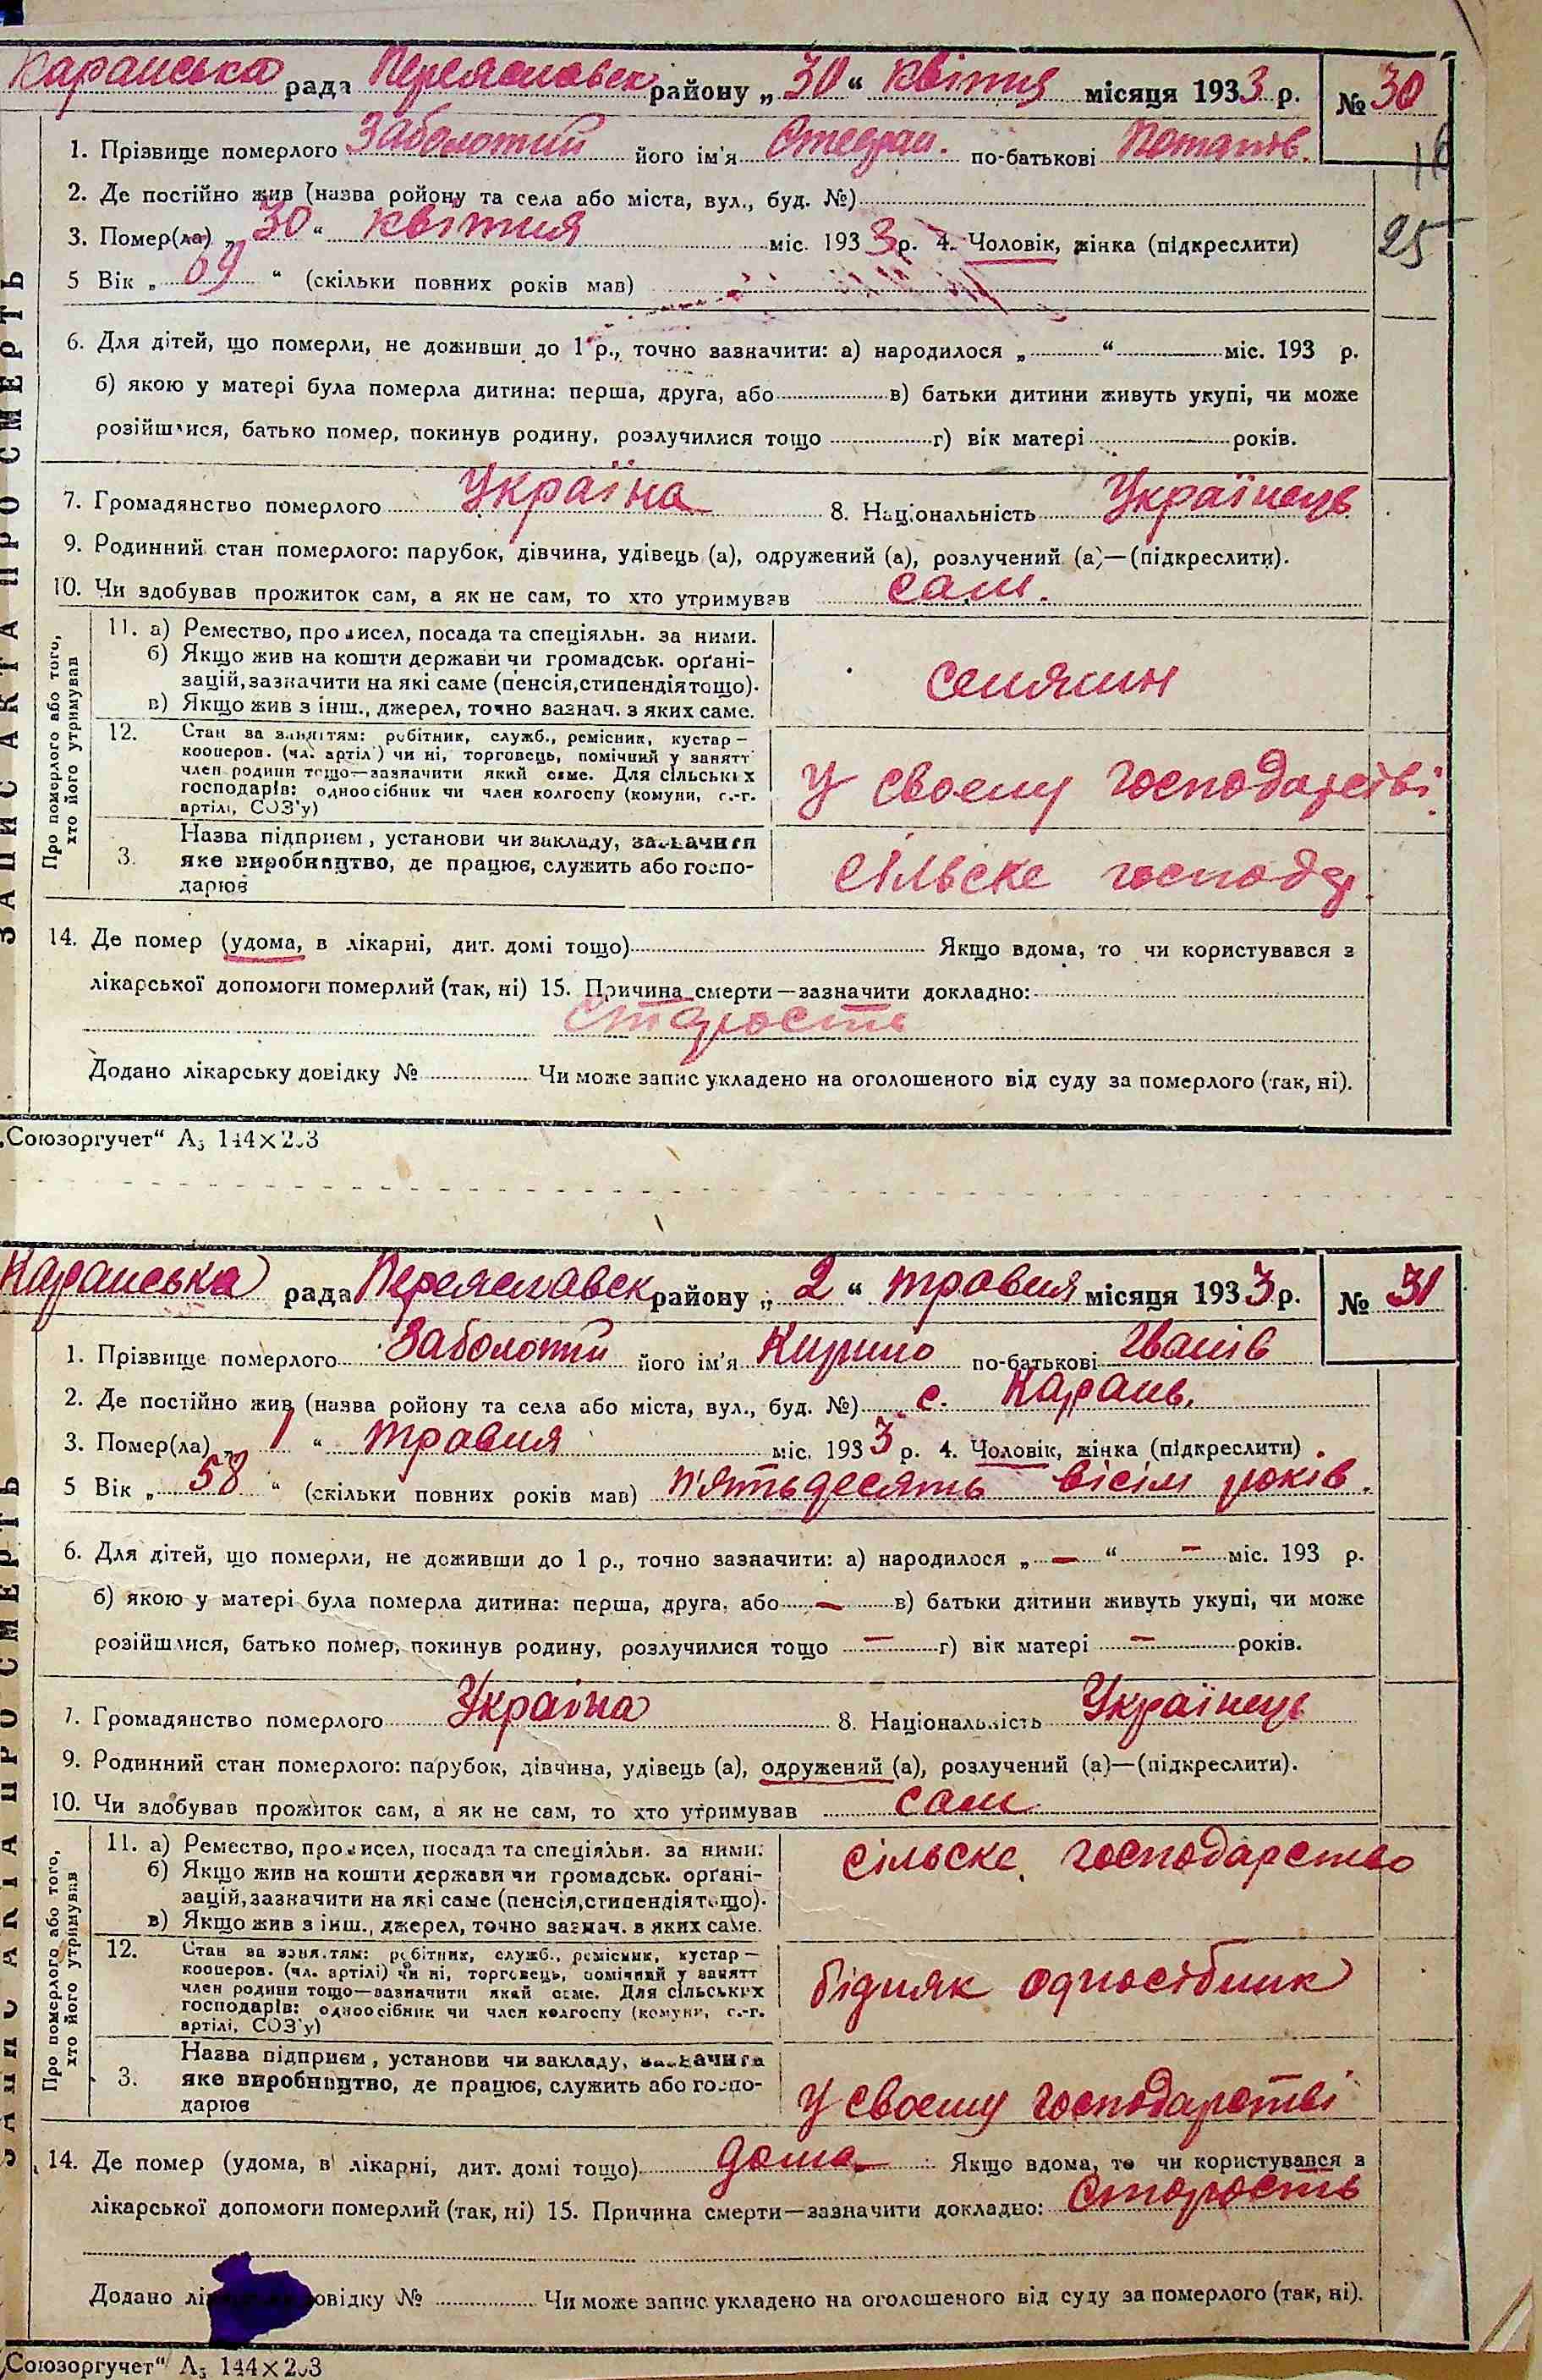 Каранська рада Переяславськ району „30“ квітня місяця 1933 р. № 30
1. Прізвище померлого Заболотий його ім'я Степан. по-батькові Потапів.
2. Де постійно жив (назва ройону та села або міста, вул., буд. №)
3. Помер(ла) „30“ квітня міс. 1933 р. 4. Чоловік, жінка (підкреслити) 25
5 Вік „69“ (скільки повних років мав)
6. Для дітей, що померли, не доживши до 1 р., точно зазначити: а) народилося „ “ міс. 193 р.
б) якою у матері була померла дитина: перша, друга, або в) батьки дитини живуть укупі, чи може
розійшлися, батько помер, покинув родину, розлучилися тощо г) вік матері років.
7. Громадянство померлого Україна 8. Національність Українець
9. Родинний стан померлого: парубок, дівчина, удівець (а), одружений (а), розлучений (а)—(підкреслити).
10. Чи здобував прожиток сам, а як не сам, то хто утримував сам.
ЗАПИС АКТА ПРО СМЕРТЬ
Про померлого або того,
хто його утримував
11. а) Ремество, промисел, посада та спеціяльн. за ними.
б) Якщо жив на кошти держави чи громадськ. орґані-
зацій, зазначити на які саме (пенсія, стипендія тощо).
в) Якщо жив з інш., джерел, точно зазнач. з яких саме.
селянин
12. Стан за заняттям: робітник, служб., ремісник, кустар—
кооперов. (чл. артілі) чи ні, торговець, помічний у занятт
член родини тощо—зазначити який саме. Для сільських
господарів: одноосібник чи член колгоспу (комуни, с.-г.
артілі, СОЗ'у)
у своему господарстві.
3. Назва підприєм, установи чи закладу, зазначити
яке виробництво, де працює, служить або госпо-
дарює
сільске господар.
14. Де помер (удома, в лікарні, дит. домі тощо) Якщо вдома, то чи користувався з
лікарської допомоги померлий (так, ні) 15. Причина смерти—зазначити докладно:
старость
Додано лікарську довідку № Чи може запис укладено на оголошеного від суду за померлого (так, ні).
„Союзоргучет“ А₅ 144×203
Каранська рада Переяславськ району „2“ травня місяця 1933 р. № 31
1. Прізвище померлого Заболотий його ім'я Кирило по-батькові Іванів
2. Де постійно жив (назва ройону та села або міста, вул., буд. №) с. Карань.
3. Помер(ла) „1“ травня міс. 1933 р. 4. Чоловік, жінка (підкреслити).
5 Вік „58“ (скільки повних років мав) п'ятьдесять вісім років.
6. Для дітей, що померли, не доживши до 1 р., точно зазначити: а) народилося „—“ — міс. 193 р.
б) якою у матері була померла дитина: перша, друга, або — в) батьки дитини живуть укупі, чи може
розійшлися, батько помер, покинув родину, розлучилися тощо — г) вік матері — років.
7. Громадянство померлого Україна 8. Національність Українець
9. Родинний стан померлого: парубок, дівчина, удівець (а), одружений (а), розлучений (а)—(підкреслити).
10. Чи здобував прожиток сам, а як не сам, то хто утримував сам
ЗАПИС АКТА ПРО СМЕРТЬ
Про померлого або того,
хто його утримував
11. а) Ремество, промисел, посада та спеціяльн. за ними.
б) Якщо жив на кошти держави чи громадськ. орґані-
зацій, зазначити на які саме (пенсія, стипендія тощо).
в) Якщо жив з інш., джерел, точно зазнач. в яких саме.
сільске господарство
12. Стан за заняттям: робітник, служб., ремісник, кустар—
кооперов. (чл. артілі) чи ні, торговець, помічний у занятт
член родини тощо—зазначити який саме. Для сільських
господарів: одноосібник чи член колгоспу (комуни, с.-г.
артілі, СОЗ'у)
бідняк одноосібник
3. Назва підприєм, установи чи закладу, зазначити
яке виробництво, де працює, служить або госпо-
дарює
у своему господарстві
14. Де помер (удома, в лікарні, дит. домі тощо) дома Якщо вдома, то чи користувався з
лікарської допомоги померлий (так, ні) 15. Причина смерти—зазначити докладно: старость
Додано лі овідку № Чи може запис укладено на оголошеного від суду за померлого (так, ні).
„Союзоргучет“ А₅ 144×203